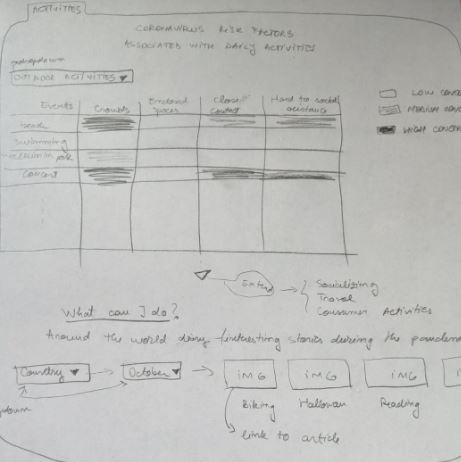 ACTIVITIES
CORONAVIRUS RISK FACTORS
ASSOCIATED WITH DAILY ACTIVITIES
OUTDOOR ACTIVITIES
Events Crowds Enclosed Spaces Close Contact Hard to social distance
LOW CONCE
MEDIUM CONC
HIGH CONCER
beach
Swimming
park
Concert
Extend
Socializing
Travel
Consumer Activities
What can I do?
Around the world diary interesting stories during the pandem
Country October IMG IMG IMG
Biking Hallowan Reading
link to article